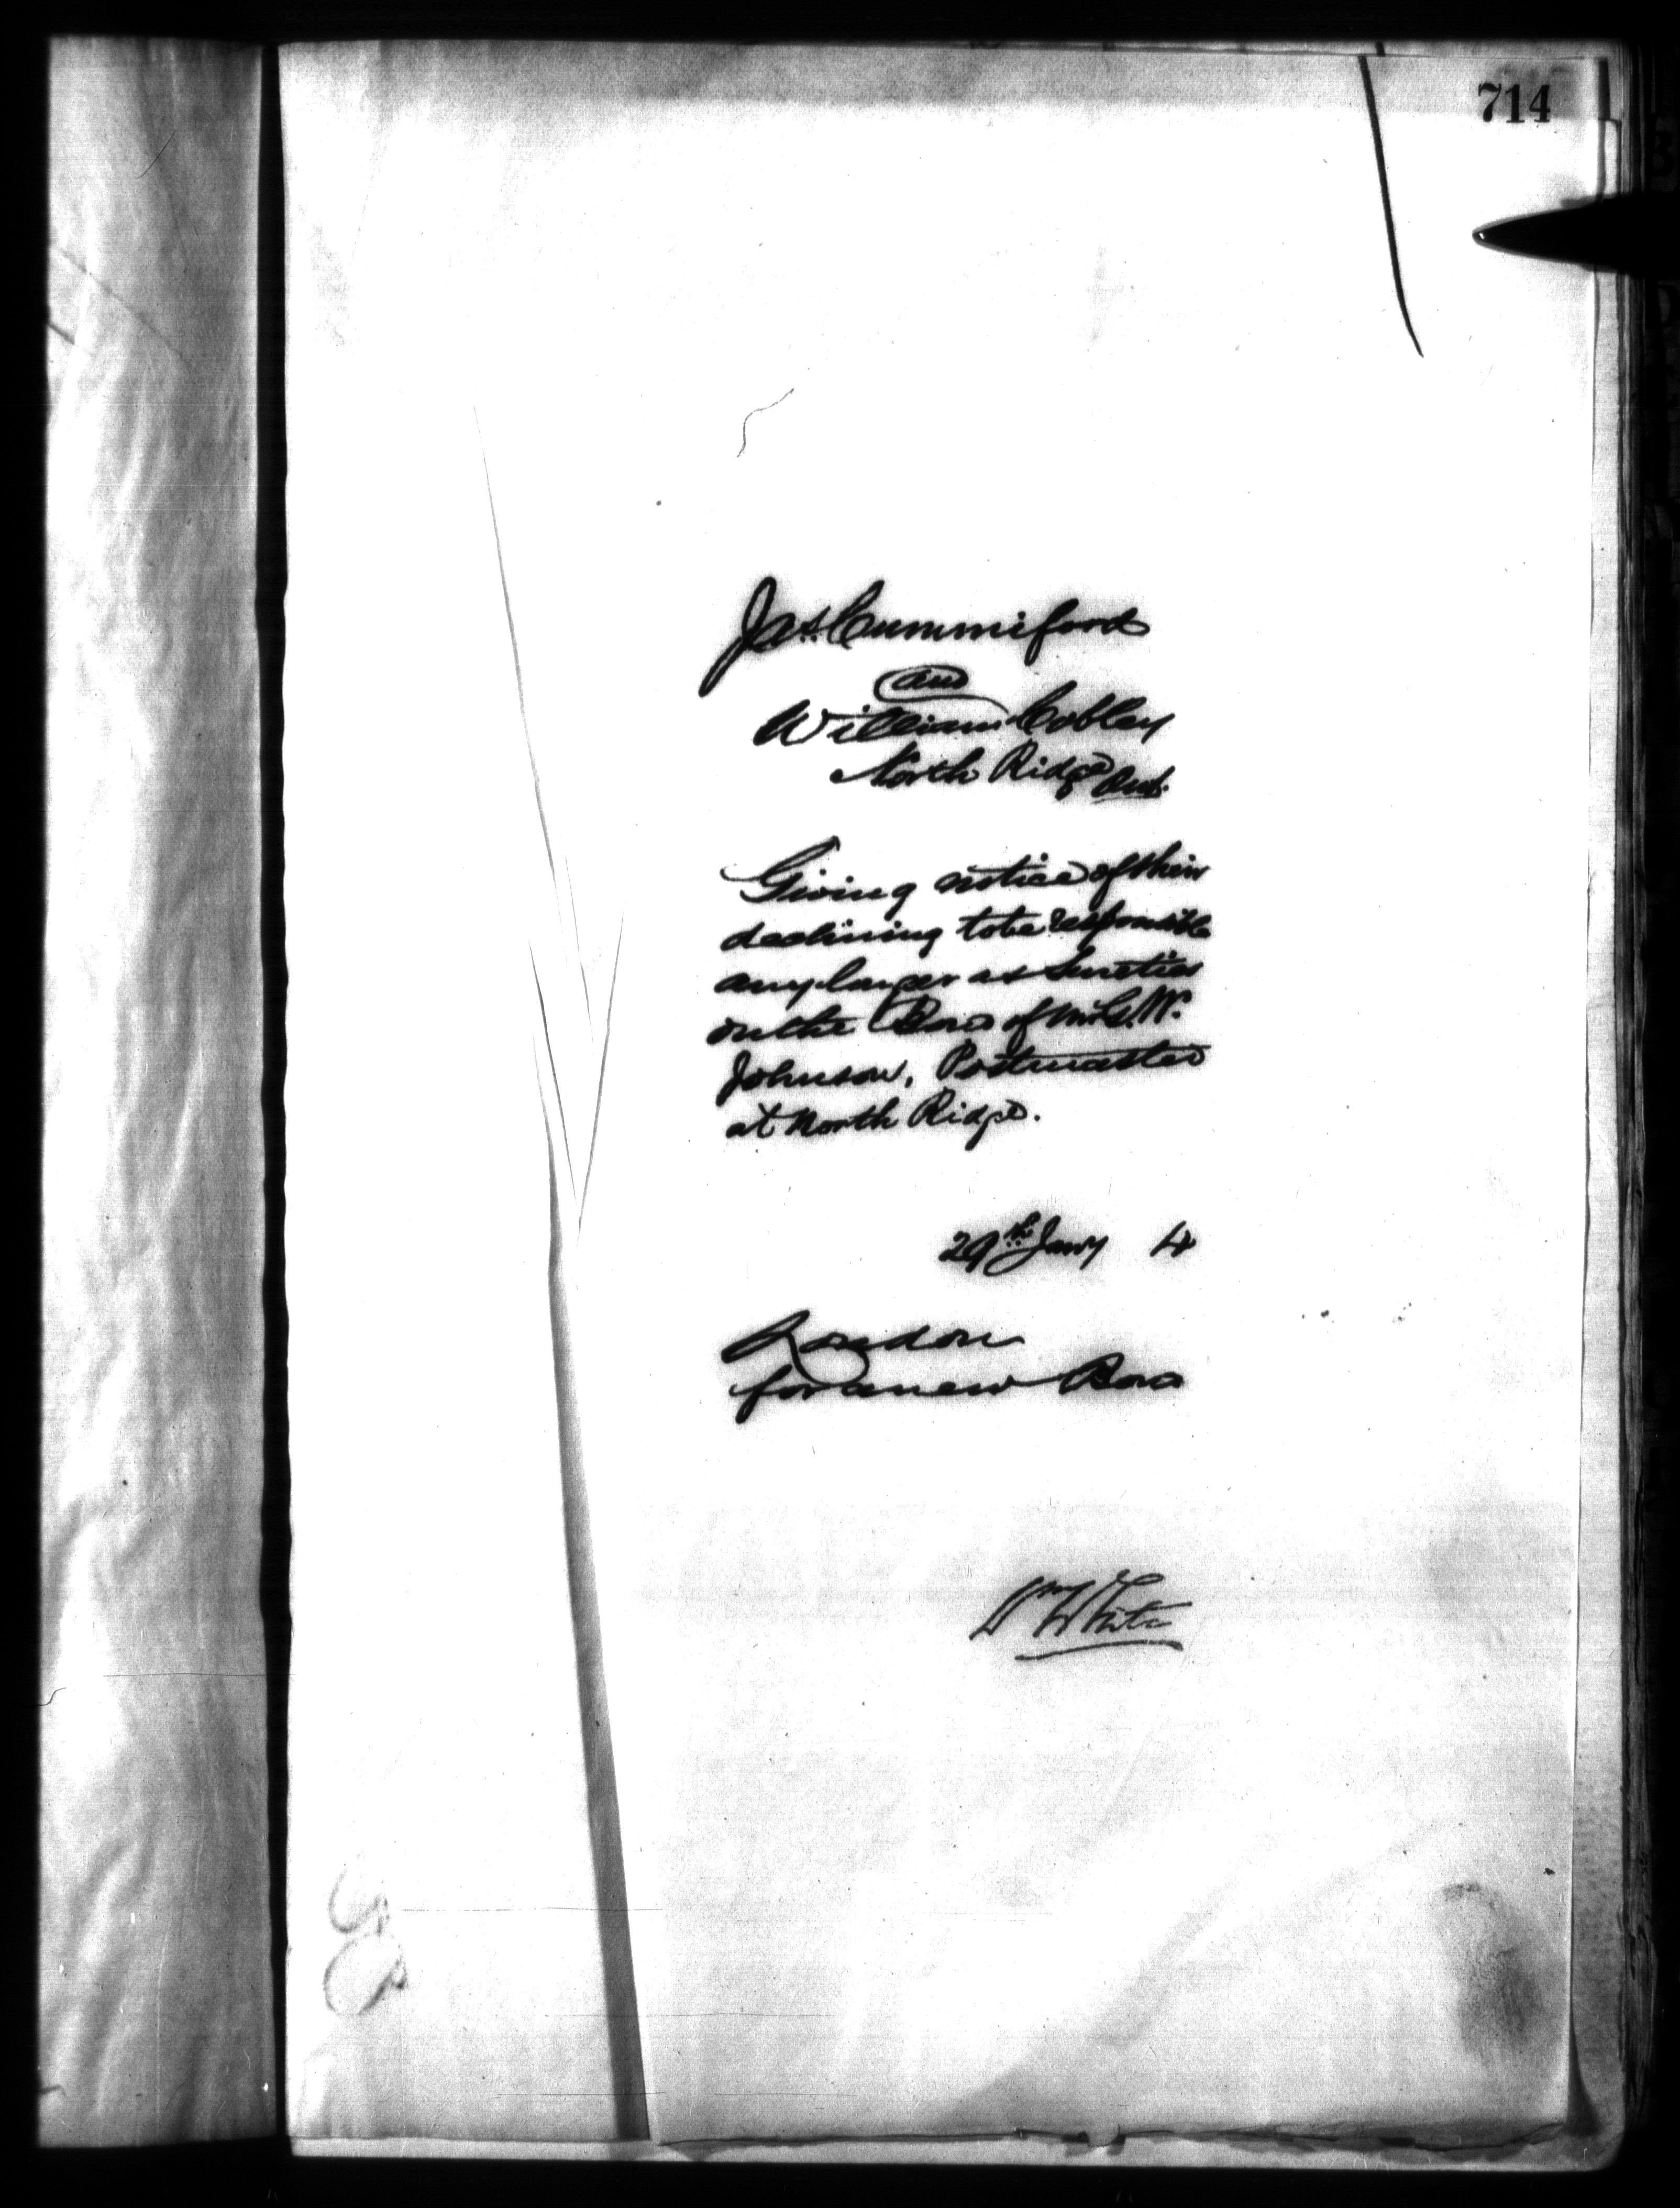 714
Jas. Cummiford
and
William Cobley
North Ridge Ont.
Giving notice of their
declining to be responsible
any longer as Sureties
on the Bond of Mr. G. W.
Johnson, Postmaster
at North Ridge.
29th Jany 4
London
for a new Bond
Wm White